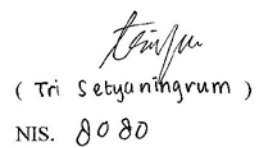 ( Tri Setyaningrum )
NIS. 8080